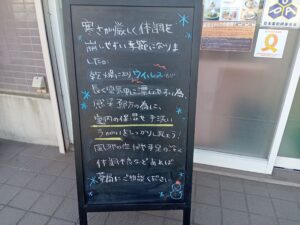 寒さが厳しく体調を
崩しやすい季節になりま
した。
乾燥によりウイルスが
長く空気中に漂いやすい為、
感染予防の為に、
室内の保湿を手洗い
うがいをしっかりしましょう!
風邪の症状や
体調不良などあれば
お気軽にご相談ください